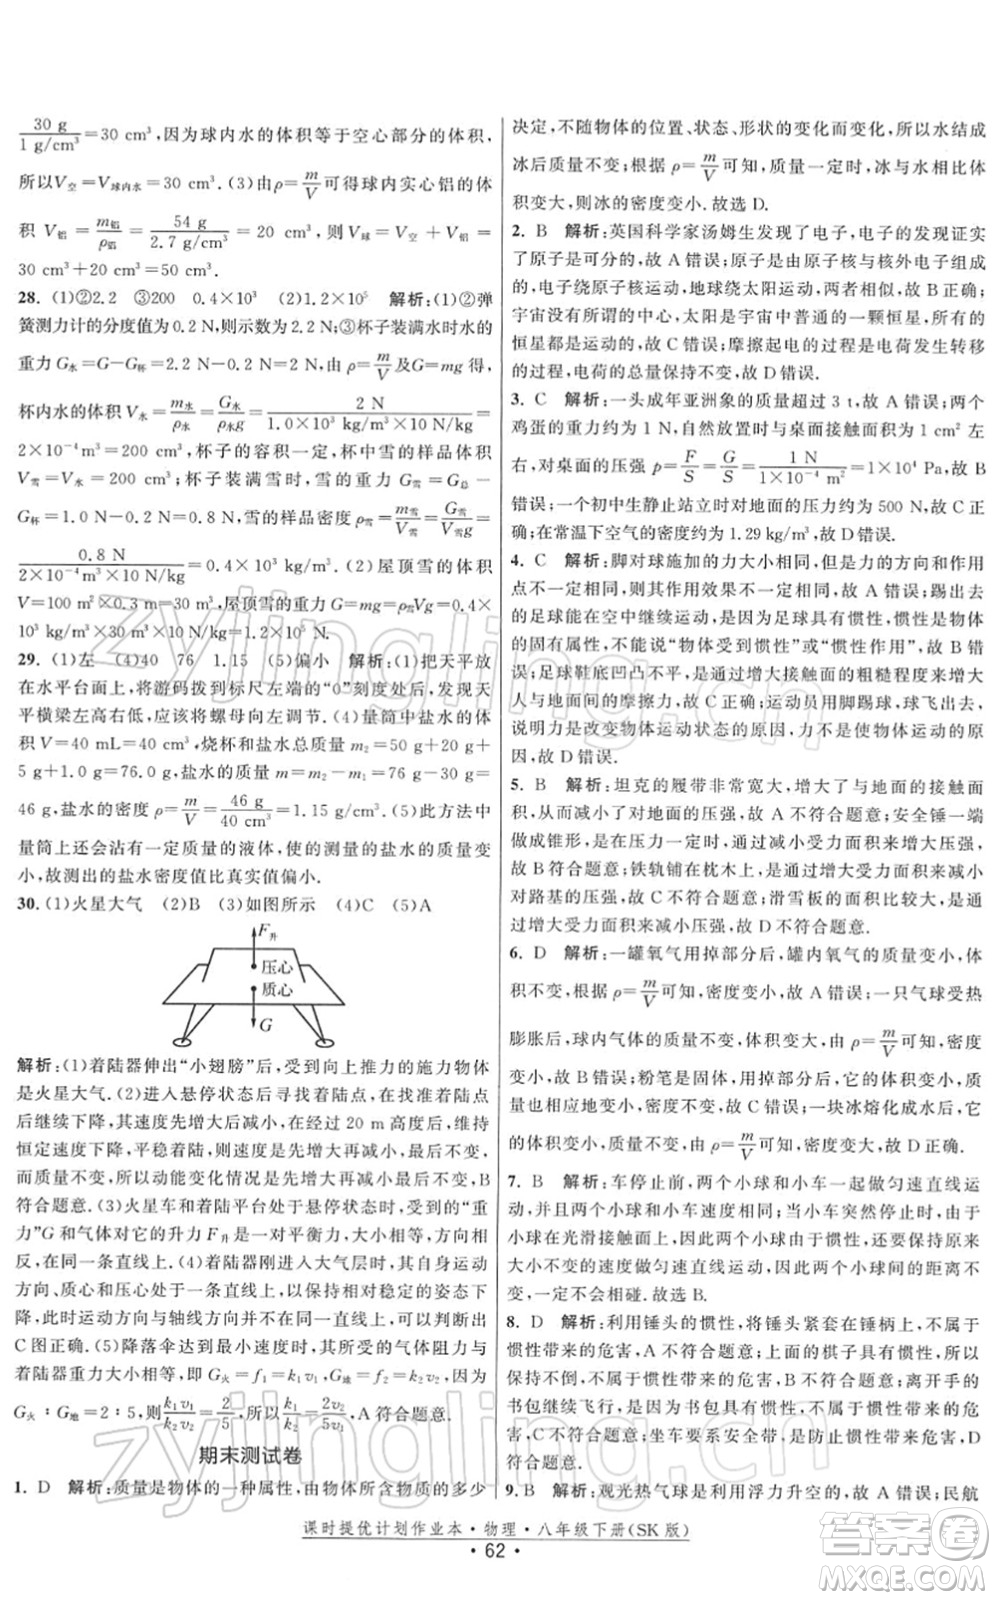 30 g/1 g/cm³=30 cm³,因为球内水的体积等于空心部分的体积,
所以V空=V球内水=30 cm³.(3)由ρ=m/V可得球内实心铝的体
积 V铝=m铝/ρ铝=54 g/2.7 g/cm³=20 cm³,则 V球=V空+V铝=
30 cm³+20 cm³=50 cm³.
28. (1)①2.2 ③200 0.4×10³ (2)1.2×10⁵ 解析:(1)②弹
簧测力计的分度值为0.2 N,则示数为2.2 N;③杯子装满水时水的
重力 G水=G-G杯=2.2 N-0.2 N=2 N,由 ρ=m/V及G=mg 得,
杯内水的体积 V水=m水/ρ水=G水/ρ水g=2 N/1.0×10³ kg/m³×10 N/kg=
2×10⁻⁴m³=200 cm³,杯子的容积一定,杯中雪的样品体积
V雪=V水=200 cm³;杯子装满雪时,雪的重力G雪=G总-
G杯=1.0 N-0.2 N=0.8 N,雪的样品密度ρ雪=m雪/V雪=G雪/V雪g=
0.8 N/2×10⁻⁴m³×10 N/kg=0.4×10³ kg/m³.(2)屋顶雪的体积
V=100 m²×0.3 m=30 m³,屋顶雪的重力 G=mg=ρ雪Vg=0.4×
10³ kg/m³×30 m³×10 N/kg=1.2×10⁵ N.
29. (1)左 (4)40 76 1.15 (5)偏小 解析:(1)把天平放
在水平台面上,将游码拨到标尺左端的“0”刻度处后,发现天
平横梁左高右低,应该将螺母向左调.(4)量筒中盐水的体
积 V=40 mL=40 cm³,烧杯和盐水总质量 m₂=50 g+20 g+
5 g+1 g=76.0 g,盐水的质量 m=m₂-m₁=76 g-30 g=
46 g,盐水的密度 ρ=m/V=46 g/40 cm³=1.15 g/cm³.(5)此方法中
量筒上还会沾有一定质量的液体,使得测量的盐水的质量变
小,故测出的盐水密度值比真实值偏小.
30. (1)火星大气 (2)B (3)如图所示 (4)C (5)A
F升
压心
质心
G
解析:(1)着陆器伸出“小翅膀”后,受到向上推力的施力物体
是火星大气.(2)进入悬停状态后寻找着陆点,发现着陆点
后继续下降,其速度先增大后减小,在经过 20 m 高度后,维持
恒定速度下降,平稳着陆;由此可知,其速度是先增大再减小最
后不变,所以动能变化情况是先增大再减小最后不变,B
符合题意.(3)火星车和着陆平台处于悬停状态时,受到的“重
力”G 和气体对它的升力 F升是一对平衡力,大小相等,方向相
反,在同一条直线上.(4)着陆器刚进入大气层时,需要调整方
向,质心和压心应处于一条直线上,保持相对稳定的姿态下
降,此时运动方向与轴线方向在同一直线上且朝向下方,故
C图正确.(5)降落伞达到最小速度时,受到的气体阻力与
行星表面重力大小相等,即 G火=f₁=k₁v₁,G地=f₂=k₂v₂,
G火∶G地=2∶5,则k₁v₁/k₂v₂=2/5,所以k₁/k₂=2v₂/5v₁,A 符合题意.
期末测试卷
1. D 解析:质量是物体的一种属性,由物体所含物质的多少
决定,不随物体的位置、状态、形状的变化而变化,所以水结成
冰后质量不变;根据 ρ=m/V 可知,质量一定时,冰与水相比,体
积变大,则冰的密度变小.故选 D.
2. B 解析:英国科学家汤姆生发现了电子,电子的发现证实
了原子是可分的,故 A 错误;原子是由原子核与核外电子组成
的,电子绕原子核运动,地球绕太阳运动,两者相似,故 B 正确;
宇宙没有所谓的中心,太阳是宇宙中普通的一颗恒星,所有的
恒星都是运动的,故 C 错误;摩擦起电的过程是电荷发生转移
的过程,电荷的总量保持不变,故 D 错误.
3. C 解析:一头成年亚洲象的质量超过 3 t,故 A 错误;两个
鸡蛋的重力约为 1 N,自然放置时与桌面接触面积约 1 cm² 左
右,对桌面的压强 p=F/S=G/S=1 N/1×10⁻⁴ m²=1×10⁴ Pa,故 B
错误;一个初中生静止站立时对地面的压力约为 500 N,故 C 正
确;在常温下空气的密度约为 1.29 kg/m³,故 D 错误.
4. C 解析:脚对球施加的力大小相同,但力的方向和作用
点不一定相同,故力的作用效果不一定相同,故 A 错误;踢出去
的足球能在空中继续运动,是因为足球具有惯性,惯性是物体
的固有属性,不能说“物体受到惯性”或“惯性作用”,故 B
错误;足球鞋底凹凸不平,是通过增大接触面的粗糙程度来增大
人与地面的摩擦力,故 C 正确;运动员用脚踢球,球飞了出去,
说明力是改变物体运动状态的原因,力不是维持物体运动的原
因,故 D 错误.
5. B 解析:坦克的履带非常宽大,增大了与地面的接触面
积,从而减小了对地面的压强,故 A 不符合题意;安全锤一端
做成锥形,是在压力一定时,通过减小受力面积来增大压强,
故 B 符合题意;铁轨铺在枕木上,是通过增大受力面积来减小
对路基的压强,故 C 不符合题意;滑雪板的面积较大,是通
过增大受力面积来减小压强,故 D 不符合题意.
6. D 解析:一罐氧气用掉部分后,罐内氧气的质量变小,体
积不变,根据 ρ=m/V可知,密度变小,故 A 错误;一只气球受热
膨胀后,球内气体的质量不变,体积变大,由 ρ=m/V可知,密度变
小,故 B 错误;粉笔是固体,用掉部分后,它的体积变小,质量
变小,密度不变,故 C 错误;一块冰熔化成水后,它
的体积变小,质量不变,由 ρ=m/V可知,密度变大,故 D 正确.
7. B 解析:车停止前,两个小球和小车一起做匀速直线运
动,两个小球和小车速度相同;当小车突然停止时,由于
小球在光滑接触面上,两个小球由于惯性,还要保持原来大小
不变的速度做匀速直线运动,因此两个小球间的距离不
变,一定不会相碰.故选 B.
8. D 解析:利用锤头的惯性,将锤头紧套在锤柄上,不是惯性
带来的危害,故 A 不符合题意;各种球类离开手后由于惯性,
保持原来的运动状态,不是惯性带来的危害,故 B 不符合题意;离开手的
书包继续飞行,不是惯性带来的危害,
故 C 不符合题意;坐车要系安全带,是为了防止惯性带来的危
害,故 D 符合题意.
9. B 解析:观光热气球是利用浮力升空的,故 A 错误;民航
课时提优计划作业本·物理·八年级下册(SK 版)
· 62 ·
zyjingling.cn
zyjingling.cn
答案圈
MXQE.COM